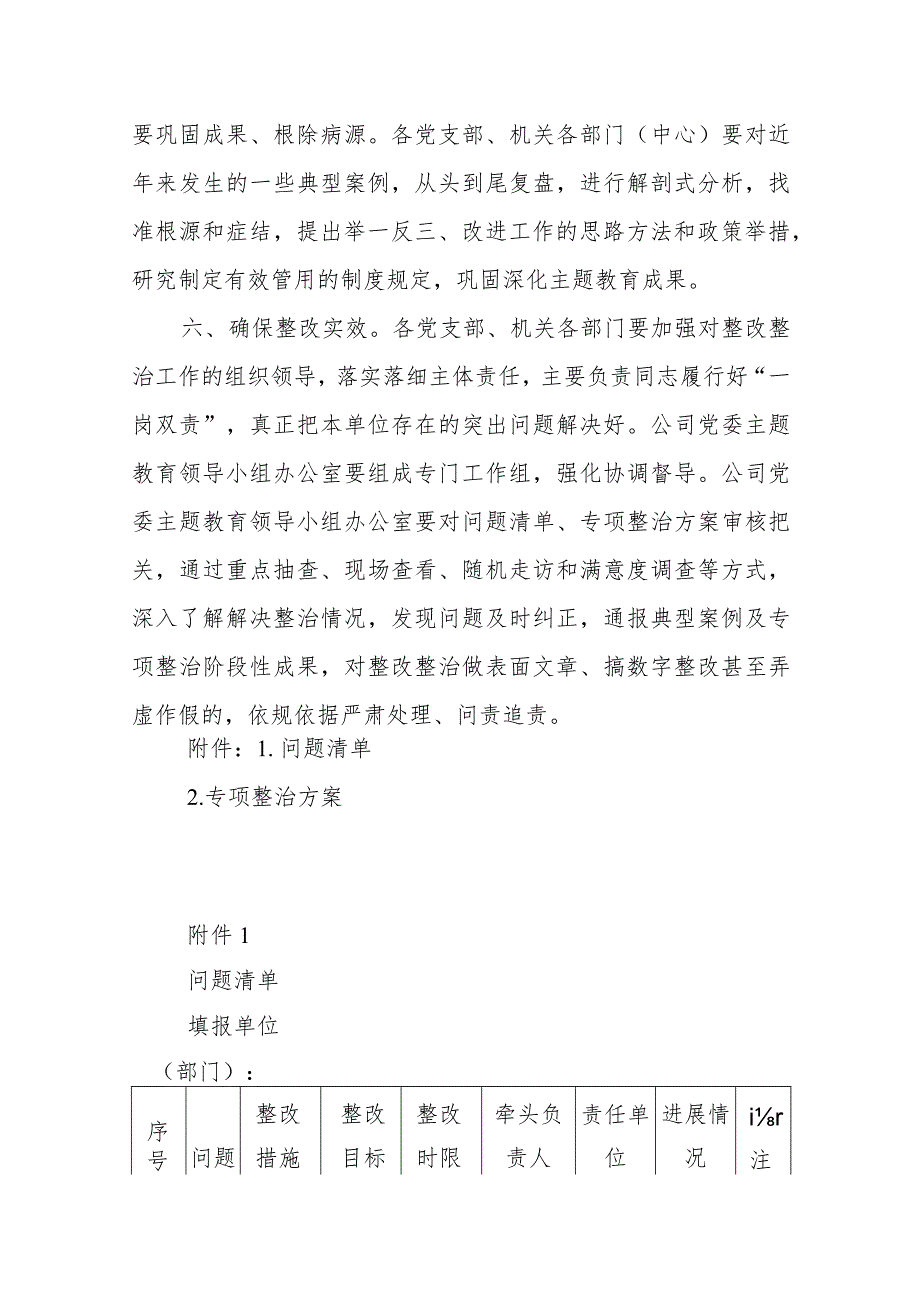 要巩固成果、根除病源。各党支部、机关各部门（中心）要对近
年来发生的一些典型案例，从头到尾复盘，进行解剖式分析，找
准根源和症结，提出举一反三、改进工作的思路方法和政策举措，
研究制定有效管用的制度规定，巩固深化主题教育成果。
六、确保整改实效。各党支部、机关各部门要加强对整改整
治工作的组织领导，落实落细主体责任，主要负责同志履行好“一
岗双责”，真正把本单位存在的突出问题解决好。公司党委主题
教育领导小组办公室要组成专门工作组，强化协调督导。公司党
委主题教育领导小组办公室要对问题清单、专项整治方案审核把
关，通过重点抽查、现场查看、随机走访和满意度调查等方式，
深入了解解决整治情况，发现问题及时纠正，通报典型案例及专
项整治阶段性成果，对整改整治做表面文章、搞数字整改甚至弄
虚作假的，依规依据严肃处理、问责追责。
附件：1. 问题清单
2.专项整治方案
附件 1
问题清单
填报单位
（部门）：
序号 问题 整改措施 整改目标 整改时限 牵头负责人 责任单位 进展情况 i⅛r注